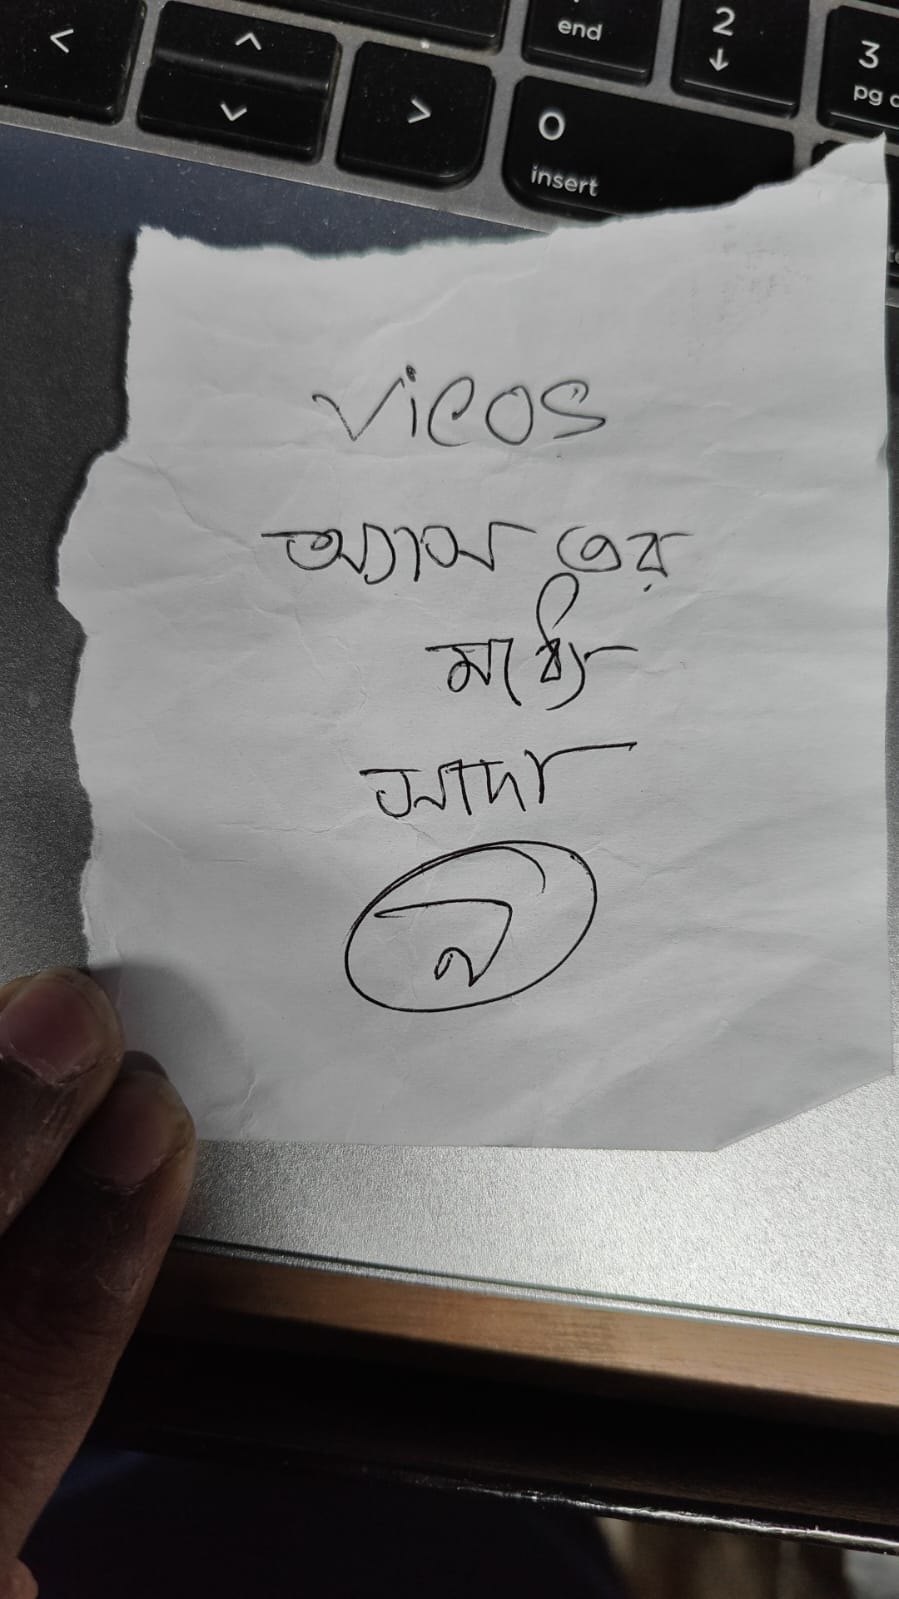 <
^
v
>
end
2
↓
3
pg
0
insert
vicos
অ্যাস এর
মধ্যে
সাদা
ন